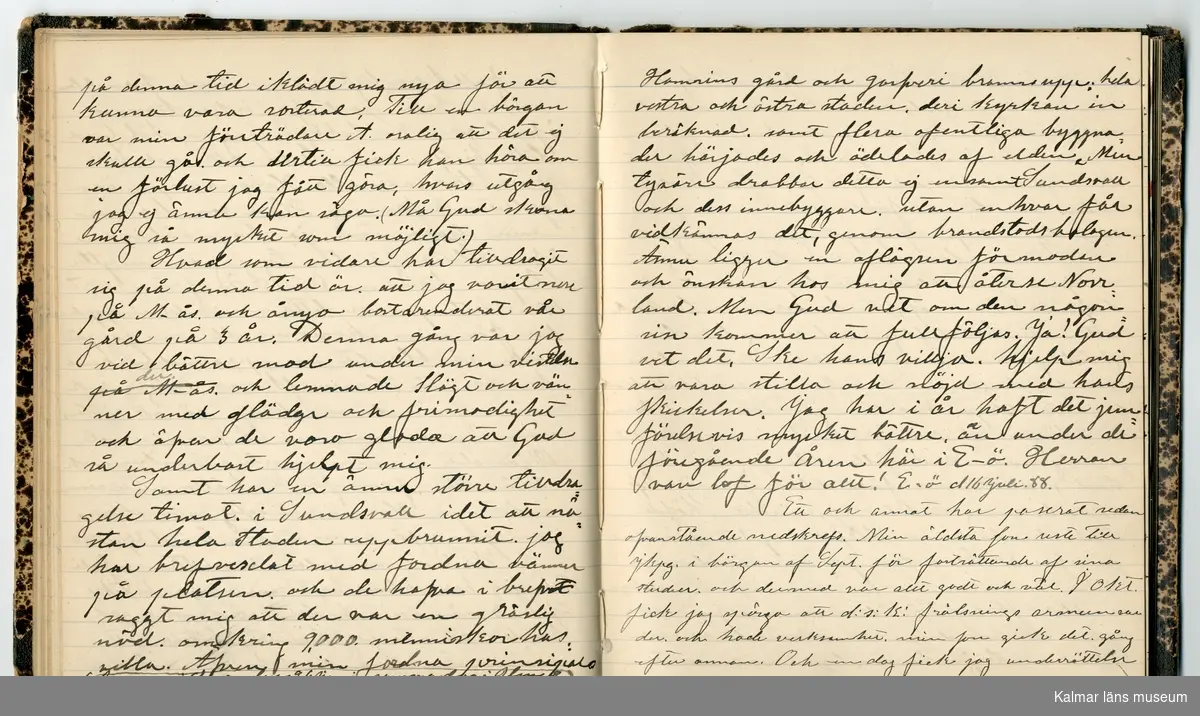 på denna tid iklädt mig nya för att
kunna vara sorterad, Till en början
var min företrädare A. orolig att det ej
skulle gå. och dertill fick han höra om
en förlust jag fått göra, hvars utgång
jag ej ännu kan säga. (Må Gud skona
mig så mycket som möjligt.)
Hvad som vidare har tilldragit
sig på denna tid är. att jag varit nere
på M-ås. och ånyo bortarenderat vår
gård på 3 år. Denna gång var jag
vid bättre mod under min vistelse
der
på M-ås. och lemnade Slägt och vän
ner med glädje och frimodighet
och äfven de voro glada att Gud
så underbart hjelpt mig.
Samt har en ännu större tilldra
gelse timat. i Sundsvall idet att nä
stan hela Staden uppbrunnit. jag
har brefvexlat med fordna vänner
på platsen. och de hafva i bref
saggt mig att der var en gräslig
nöd. omkring 9,000. menniskor hus
villa. Äfven min fordna prinsipals
Hamrins gård och garfveri branns upp. hela
vestra och östra staden. deri kyrkan in
beräknad. samt flera ofentliga byggna
der härjades och ödelades af elden. Min
tysäre drabbar detta ej ensamt Sundsvall
och dess innebyggare. utan enhvar får
vidkännas det, genom brandstodsbolagen.
Ännu ligger en aflägsen förmodan
och önskan hos mig att återse Norr
land. Men Gud vet om den någon
sin kommer att fullföljas. Ja! Gud
vet det. Ske hans vilja. hjelp mig
att vara stilla och nöjd med hans
skickelser. Jag har i år haft det jem
förelsevis mycket bättre. än under de
föregående Åren här i E-ö. Herran
vare lof för allt! E-ö d 16 Juli. 88.
Ett och annat har paserat sedan
ofvanstående nedskrefs. Min äldsta son reste till
Jkpg. i början af Sept. för fortsättande af sina
studier. och dermed var allt godt och väl. I Okt.
fick jag spörga att d: s: k: frälsnings armeen var
der. och hade verksamhet. min son gick dit. gång
efter annan. Och en dag fick jag underrättelse
Kalmar läns museum